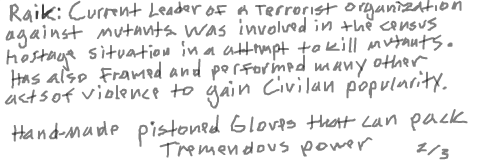 Raik: Current Leader of a Terrorist organization
against mutants. Was involved in the census
hostage situation in a attempt to kill mutants.
Has also framed and performed many other
acts of violence to gain Civilan popularity.
Hand-made pistoned Gloves that can pack
Tremendous power 2/3